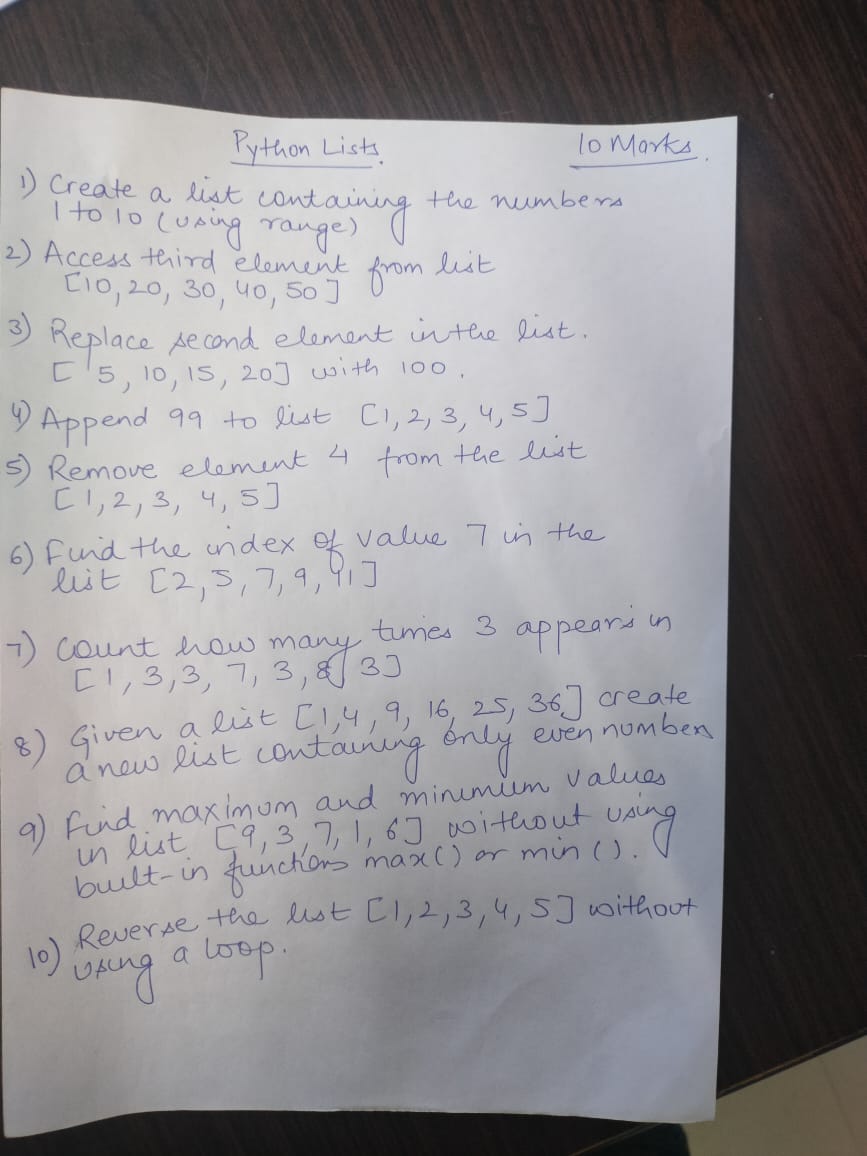 Python Lists. 10 Marks.
1) Create a list containing the numbers
1 to 10 (using range)
2) Access third element from list
[10, 20, 30, 40, 50]
3) Replace second element in the list.
[5, 10, 15, 20] with 100.
4) Append 99 to list [1, 2, 3, 4, 5]
5) Remove element 4 from the list
[1, 2, 3, 4, 5]
6) Find the index of value 7 in the
list [2, 5, 7, 9, 11]
7) Count how many times 3 appears in
[1, 3, 3, 7, 3, 8, 3]
8) Given a list [1, 4, 9, 16, 25, 36] create
a new list containing only even numbers
9) Find maximum and minimum values
in list [9, 3, 7, 1, 6] without using
built-in functions max() or min().
10) Reverse the list [1, 2, 3, 4, 5] without
using a loop.